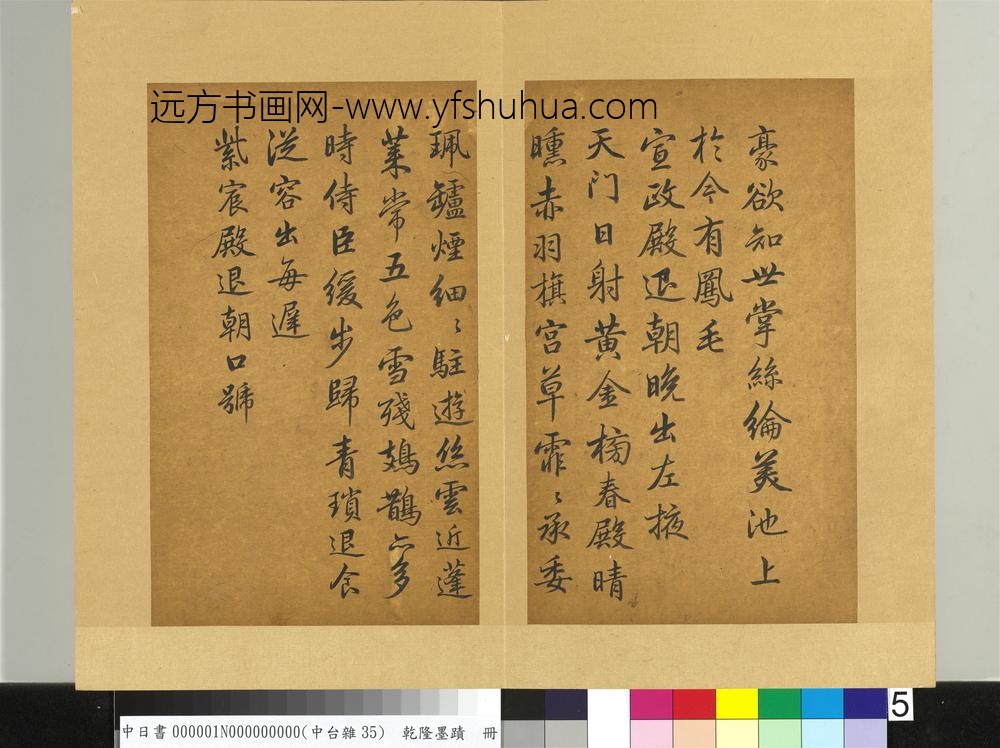 远方书画网-www.yfshuhua.com
豪欲知世掌絲綸美池上
於今有鳳毛
宣政殿退朝晚出左掖
天門日射黃金榜春殿晴
曛赤羽旗宮草霏〻承委
珮鑪煙細〻駐遊絲雲近蓬
萊常五色雪殘鳷鵲亦多
時侍臣緩步歸青瑣退食
從容出每遲
紫宸殿退朝口號
5
中日書 000001N000000000(中台雜 35) 乾隆墨蹟 冊